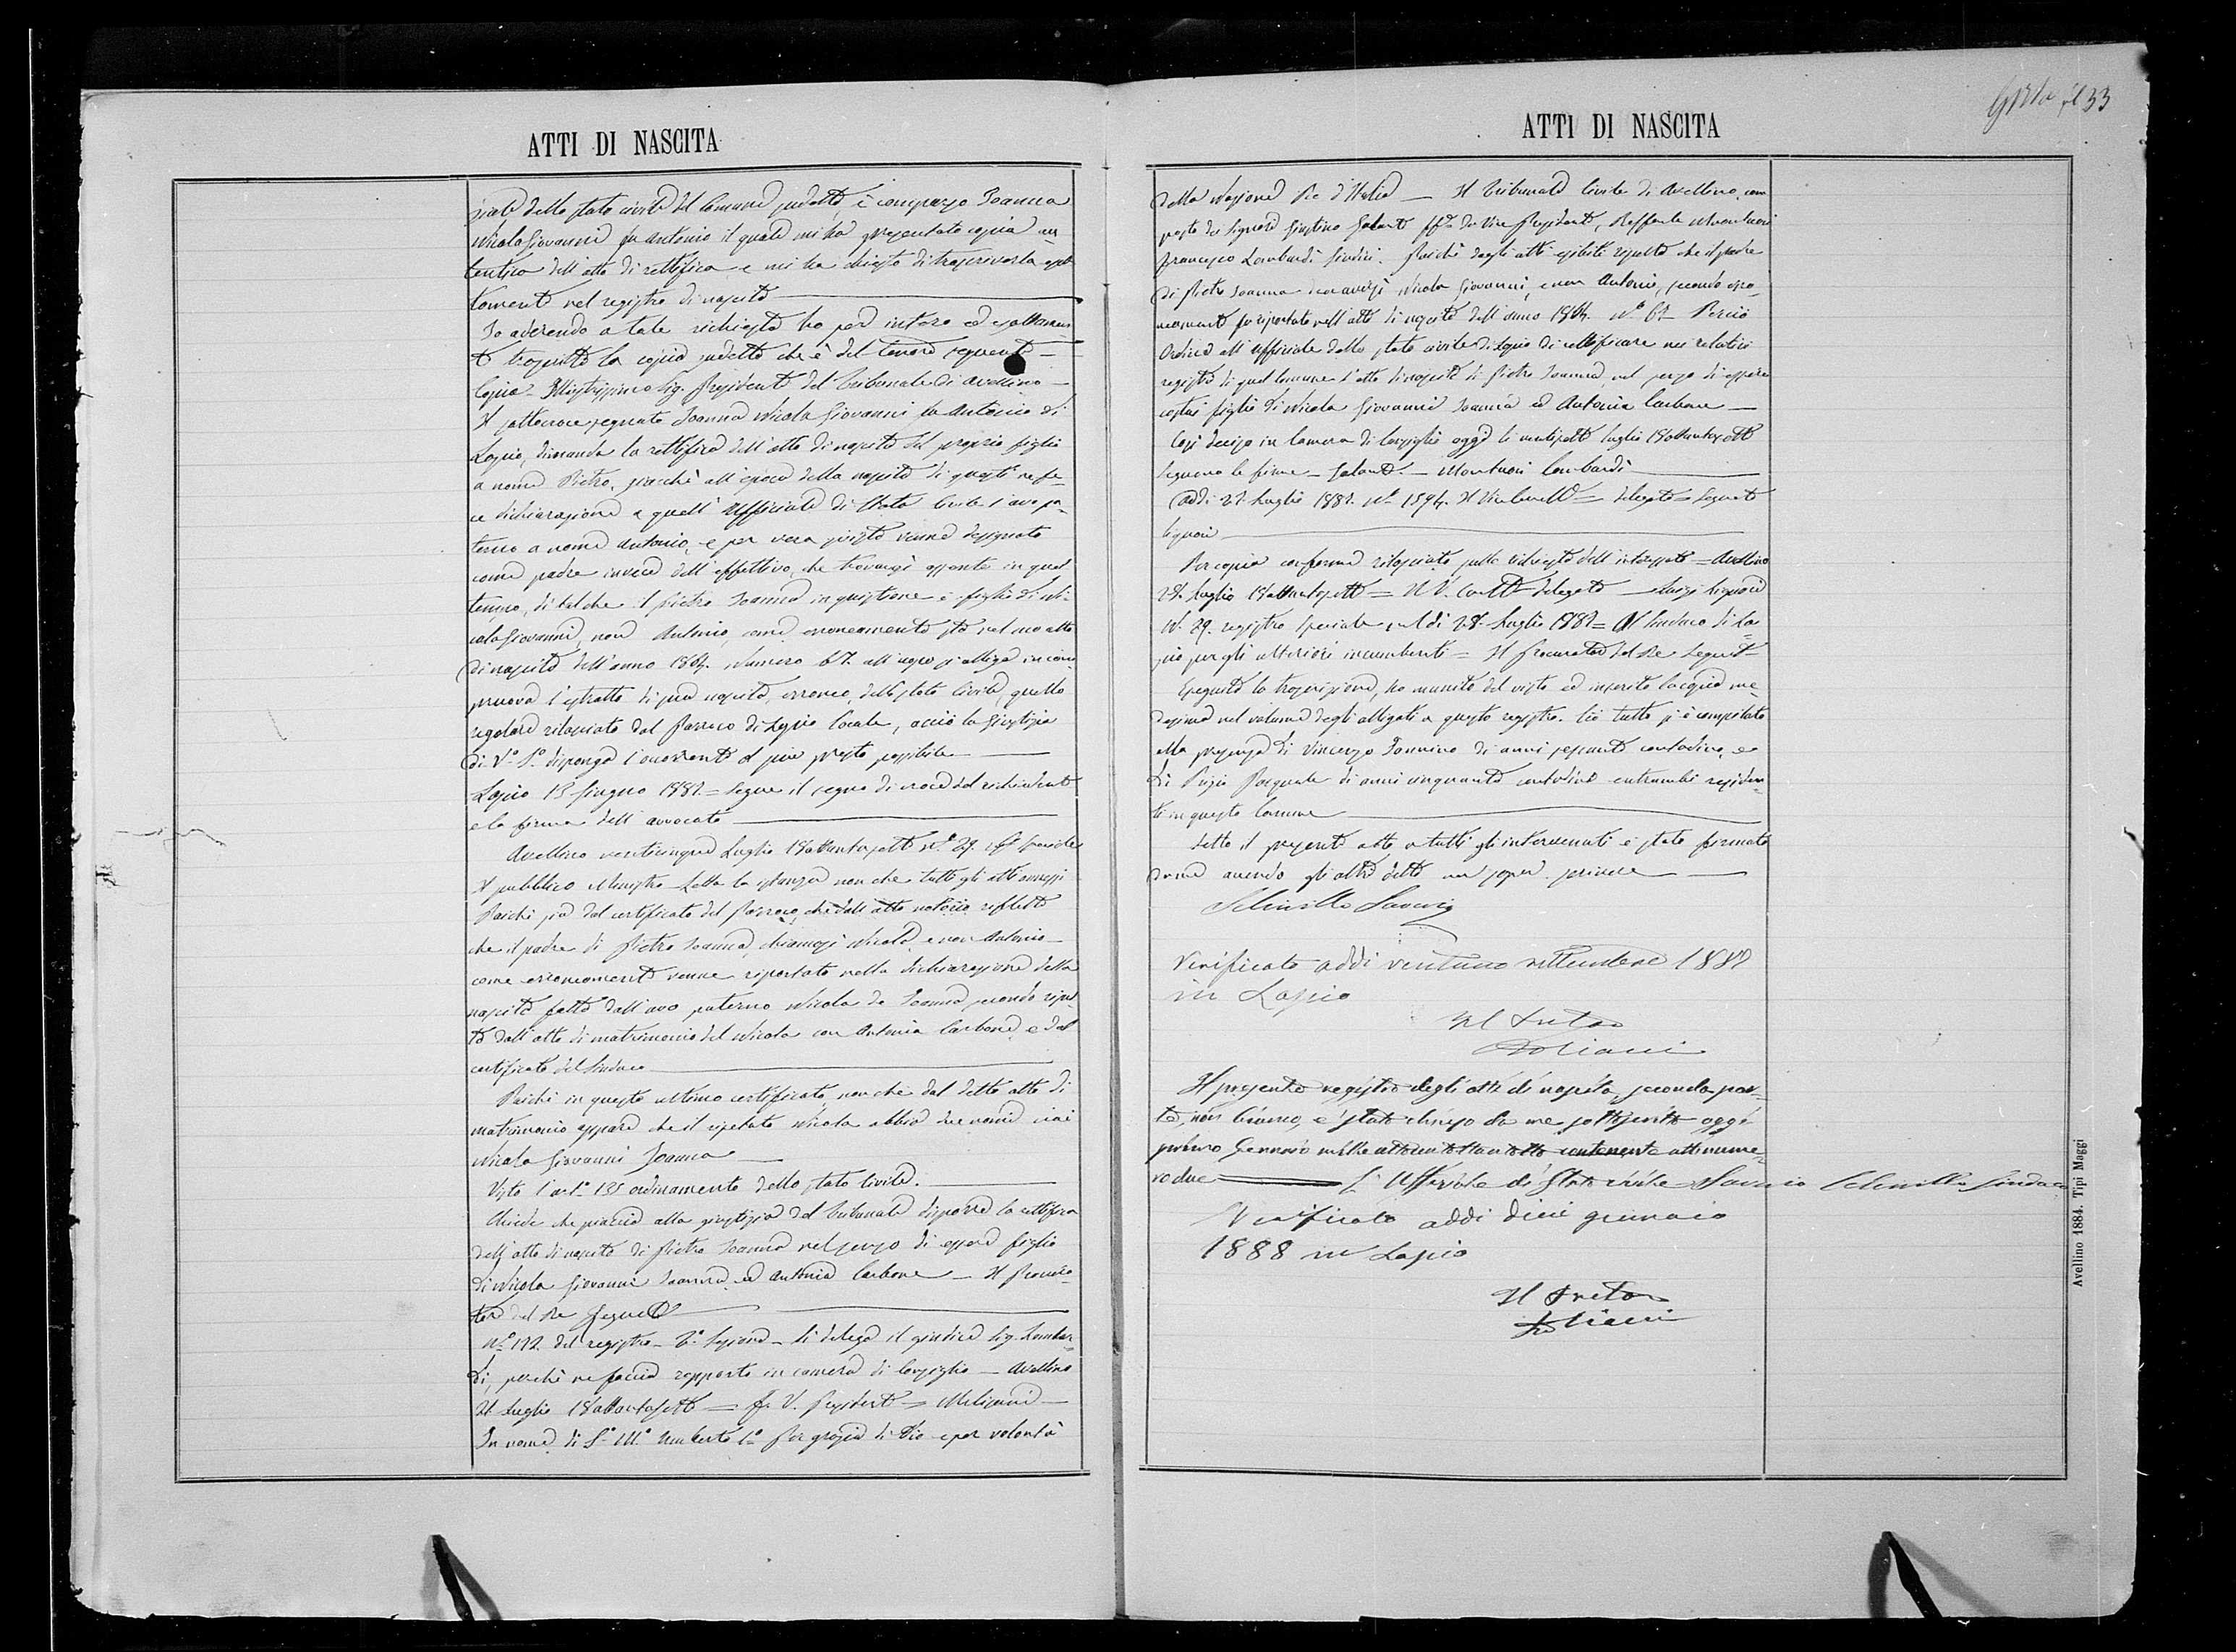 ATTI DI NASCITA
ciale dello stato civile del Comune sudetto, è comparso Joanna
Nicola Giovanni fu Antonio il quale mi ha presentato copia au-
tentica dell'atto di rettifica e mi ha chiesto di trascriverla
nel registro di nascita
Io aderendo a tale richiesta ho per intero ed esattamen
trascritto la copia sudetta che è del tenore seguente
Copia - Illustrissimo Sig. Presidente del Tribunale di Avellino
Il sottocroce segnato Joanna Nicola Giovanni fu Antonio di
Lapio, dimanda la rettifica dell'atto di nascita del proprio figlio
a nome Pietro, giacchè all'epoca della nascita di questi ne fe-
ce dichiarazione a quell'Ufficiale di Stato Civile l'avo pa-
terno a nome Antonio, e per vera svista venne designato
come padre invece dell'effettivo, che trovavasi assente in quel
tempo, di tal che il Pietro Joanna in quistione è figlio di Ni-
cola Giovanni, non Antonio, come erroneamente sta nel suo atto
di nascita dell'anno 1864. Numero 67. all'uopo si alliga in com
pruova l'estratto di sua nascita, erroneo, dello stato Civile, quello
regolare rilasciato dal Parroco di Lapio locale, acciò la Giustizia
di V.a S.a disponga l'occorrente al più presto possibile
Lapio 13 Giugno 1887. = Segue il segno di croce del richiedente
e la firma dell'avvocato
Avellino venticinque Luglio 18ottantasette N.o 29. speciale
Il pubblico Ministero Letta la istanza non che tutti gli atti annessi
Poichè sia dal certificato del Parroco, che dall'atto notorio riflette
che il padre di Pietro Joanna, chiamasi Nicola, e non Antonio
come erroneamente venne riportato nella dichiarazione della
nascita fatta dall'avo paterno Nicola de Joanna secondo
dall'atto di matrimonio del Nicola con Antonia Carbone, e dal
certificato del Sindaco
Poichè in questo ultimo certificato, non che dal detto atto di
matrimonio appare che il ripetuto Nicola abbia due nomi cioè
Nicola Giovanni Joanna
Visto l'art.o 135 ordinamento dello stato Civile.
Chiede che piaccia alla giustizia del Tribunale disporre la rettifica
dell'atto di nascita di Pietro Joanna nel senso di essere figlio
di Nicola Giovanni Joanna ed Antonia Carbone - Il Procura-
tore del Re
N.o 172 del registro - Si delega il giudice Sig. Lombar-
di, perchè ne faccia rapporto in camera di Consiglio - Avellino
Luglio 18ottantasette = V. Presidente =
In nome di S.a M.a Umberto I.o per grazia di Dio e per volontà
ATTI DI NASCITA
33
della Nazione Re d'Italia - Il Tribunale Civile di Avellino, com
posto dai Signori Giustino Galante ff.a da Vice Presidente, Raffaele Montuori
Francesco Lombardi Giudici. Poichè dagli atti esibiti risulta che il padre
di Pietro Joanna Nicola Giovanni, e non Antonio, secondo erro-
neamente fu riportato nell'atto di nascita dell'anno 1864. N.o 67. Perciò
Ordina all'Ufficiale dello stato civile di Lapio di rettificare nei relativi
registri di quel Comune l'atto di nascita di Pietro Joanna, nel senso di essere
costui figlio di Nicola Giovanni Joanna ed Antonia Carbone
Così deciso in Camera di Consiglio oggi li ventisette luglio 18ottantasette
Seguono le firme - Galante - Montuori Lombardi
Addì 27. Luglio 1887. N.o 1594. Il Vice Cancelliere = delegato = Segnato
Liguori
Per copia conforme rilasciata sulla richiesta dell'interessato = Avellino
28. Luglio 18ottantasette = Il V. Canc.re delegato - Luigi Liguori
N. 29. registro speciale sul di 28. Luglio 1887 = Al Sindaco di La-
pio per gli ulteriori incumbenti = Il Procuratore del Re
Eseguita la trascrizione, ho munito del visto ed inserito la copia me-
desima nel volume degli alligati a questo registro. Ciò tutto si è compilato
alla presenza di Vincenzo Jannino di anni sessanta contadino, e
di Pasquale di anni cinquanta contadino entrambi residen-
ti in questo Comune
Letto il presente atto a tutti gli intervenuti è stato firmato
da me avendo gli altri detto non saper scrivere
Schivillo Saverio
Verificato addì ventuno settembre 1887
in Lapio
Il Pretore
Il presente registro degli atti di nascita, seconda par-
te, è stato chiuso da me sottoscritto oggi
primo Gennaio mille ottocentottantotto contenente atti nume-
ro due L'Uffiziale di Stato Civile Saverio Schivillo Sindaco
Verificato addì dieci gennaio
1888 in Lapio
Il Pretore
Avellino 1884. Tipi Maggi